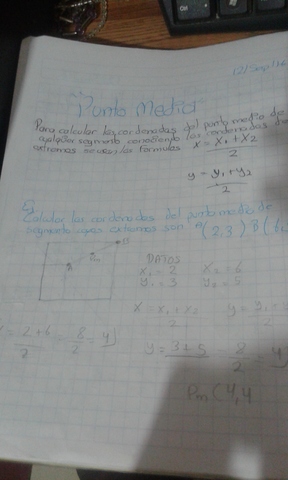 12/Sept/16
Punto Medio
Para calcular las cordenadas del punto medio de
cualquier segmento conociendo las cordenadas
extremos se usa las formulas x = x₁ + x₂
2
y = y₁ + y₂
2
Calcular las cordenadas del punto medio de
segmento cuyos extremos son A(2,3) B(6,
DATOS
x₁ = 2 x₂ = 6
y₁ = 3 y₂ = 5
x = x₁ + x₂ y = y₁ =
2 2
= 2+6 = 8 = 4)
2 2
y = 3+5 = 8 = 4
2 2
Pm (4,4